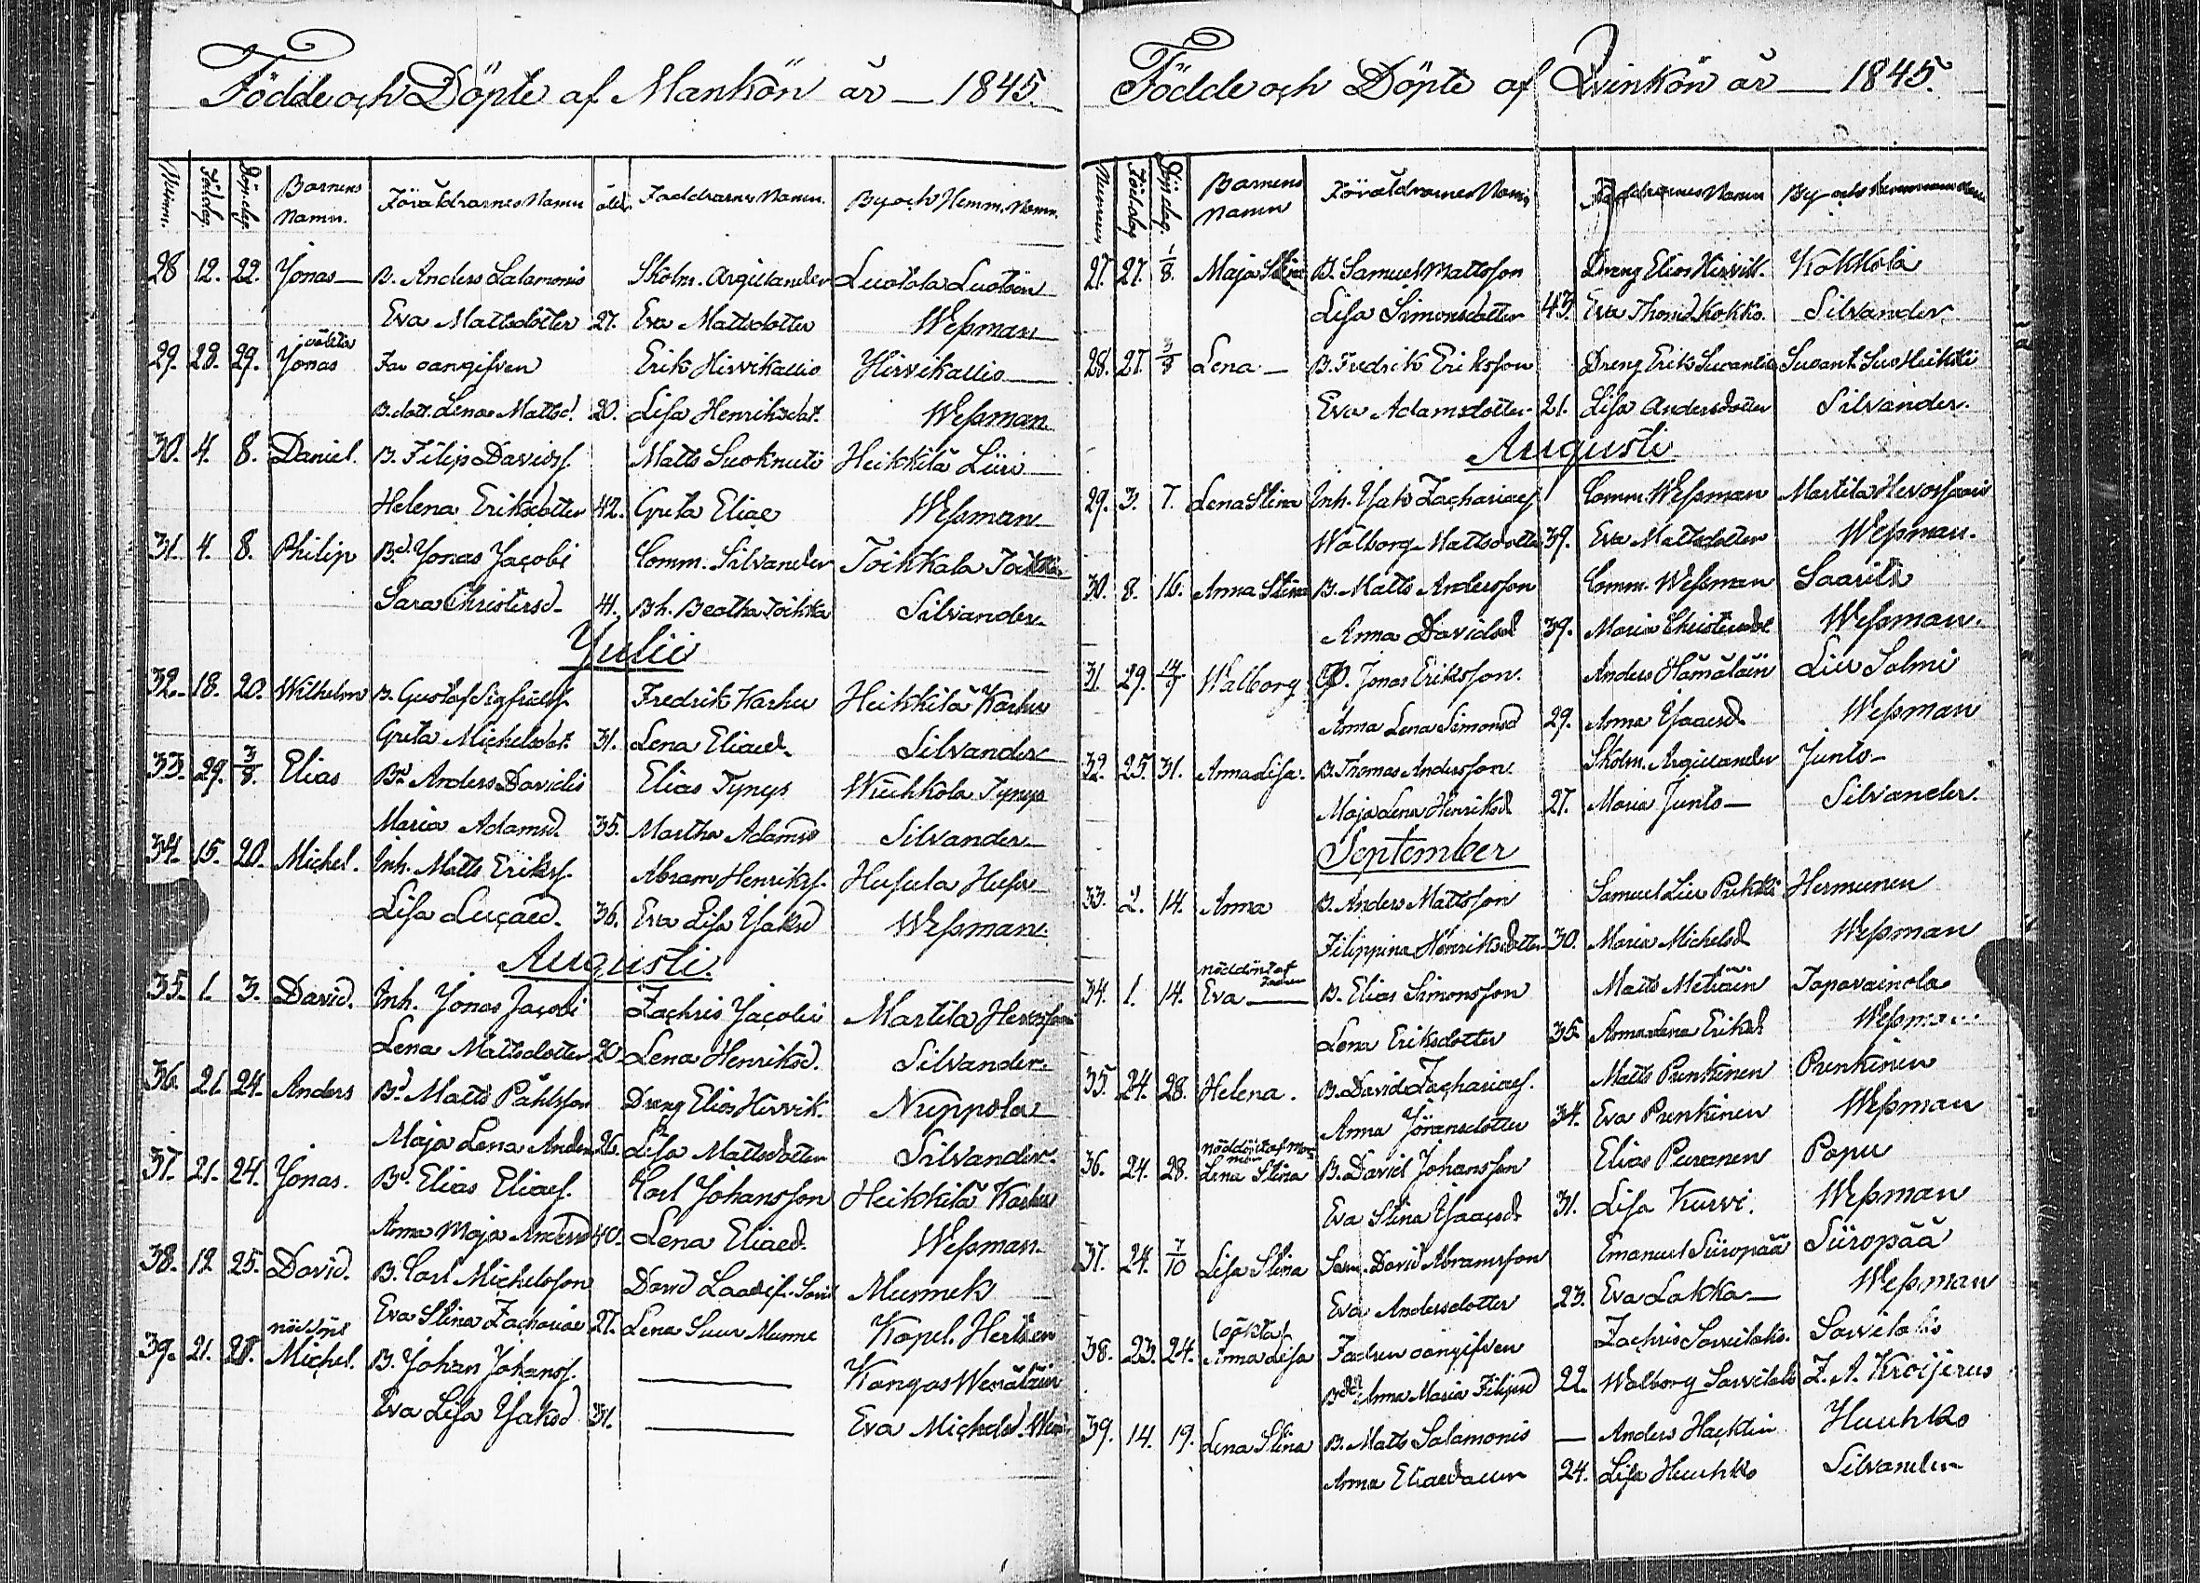 Födde och Döpte af Mankön år — 1845.
Numm. Föld.dag. Döp.dag. Barnens Namn. Föräldrarnes Namn ålder Faddrarnes Namn. By och Hemm. Namn.
28 12. 22. Jonas — B. Anders Salamonis Skolm. Argillander Luotola Luotoin
Eva Mattsdotter 27. Eva Mattsdotter Weßman
oäkta
29. 28. 29. Jonas Far oangifven Erik Hirvikallio Hirvikallio
B.dott. Lena Mattsd. 20. Lisa Henriksdot. Weßman
30. 4. 8. Daniel. B. Filip Davidsf. Matts Suoknuti Heikkilä Liiri
Helena Eriksdotter 42. Greta Eliae Weßman
31. 4. 8. Philip Bd. Jonas Jacobi Comm. Silvander Toikkala
Sara Christersd. 41. Bh. Beatha Toikka Silvander.
Julii
32. 18. 20. Wilhelm B. Gustaf Sigfridsf. Fredrik Karhu Heikkilä Karhu
Greta Michelsdot. 31. Lena Eliaed. Silvander
33. 29. 3/8. Elias Bd. Anders Davidis Elias Tynys Wiuhkola Tynys
Maria Adamsd. 35. Martha Adamsd Silvander
34. 15. 20. Michel. Inh. Matts Eriksf. Abram Henriksf. Husula Husu
Lisa Lucaed. 36. Eva Lisa Jaksd Weßman
Augusti.
35. 1. 3. David. Inh. Jonas Jacobi Zachris Jacobi Martila
Lena Mattsdotter 20. Lena Henriksd. Silvander.
36. 21. 24. Anders Bd. Matts Påhlsson Dreng Elias Hirvik. Nuppola
Maja Lena Anders 26. Lisa Mattsdotter Silvander.
37. 21. 24. Jonas. Bd. Elias Eliaef. Carl Johansson Heikkilä Karhu
Anna Maja Andersd 40. Lena Eliaed. Weßman.
38. 12 25. David. B. Carl Michelsson David Munnek
Eva Stina Zachariae 27. Lena Suur Munne Kapel.
nöddöpt
39. 21. 28. Michel. B. Johan Johansf. — Kangas Wenäläin
Eva Lisa Jaksd 31. — Eva Michelsd.
Födde och Döpte af Qvinkön år — 1845.
Nummer Född.dag Döp.dag. Barnens Namn Föräldrarnes Namn Faddrarnes Namn By och Hemmans Namn
27. 27. 1/8 Maja Stina B. Samuel Mattsson Dreng Elias Hirvik. Kokkola
Lisa Simonsdotter 43. Eva Thomsd Kokko. Silvander
28. 27. 3/8 Lena — B. Fredrik Eriksson Dreng Erik Suvant. Suvant.
Eva Adamsdotter 21. Lisa Andersdotter Silvander.
Augusti
29. 3. 7. Lena Stina Inh. Jak Zachariaef Comm. Weßman Martila
Walborg Mattsdotter 39. Eva Mattsdotter Weßman.
30. 8. 16. Anna Stina B. Matts Andersson Comm. Weßman
Anna Davidsd 39. Maria Weßman.
31. 29. 14/9 Walborg Jonas Eriksson. Anders Hämäläin Liu Salmi
Anna Lena Simonsd 29. Anna Weßman
32. 25. 31. Anna Lisa. B. Thomas Andersson. Skolm. Argillander Junto
Maja Lena Henriksd 27. Maria Junto — Silvander.
September
33. 2. 14. Anna B. Anders Mattsson Samuel Hermunen
Filippina Henriksdotter 30. Maria Michelsd Weßman
nöddöpt af
34. 1. 14. Eva — B. Elias Simonsson Matts Metiäin Tapavainola
Lena Eriksdotter 35. Anna Lena Eriksd Weßman
35. 24. 28. Helena. B. David Zachariaef. Matts Prunkinen Prunkinen
Anna Jöransdotter 34. Eva Prunkinen Weßman
nöddöpt af
36. 24. 28. Lena Stina B. David Johansson Elias Peuranen Papu
Eva Stina 31. Lisa Kurvi. Weßman
37. 24. 7/10 Lisa Stina David Abramsson Emanuel Siiropää Siiropää
Eva Andersdotter 23. Eva Lakka — Weßman
38. 23. 24. Anna Lisa Fadren oangifven Zachris Savilaks. Savilaks
Anna Maria Filipsd 22. Walborg Savilaks Z. A. Kroijerus
39. 14. 19. Lena Stina B. Matts Salamonis — Anders Huuhko
Anna 24. Lisa Huuhko Silvander